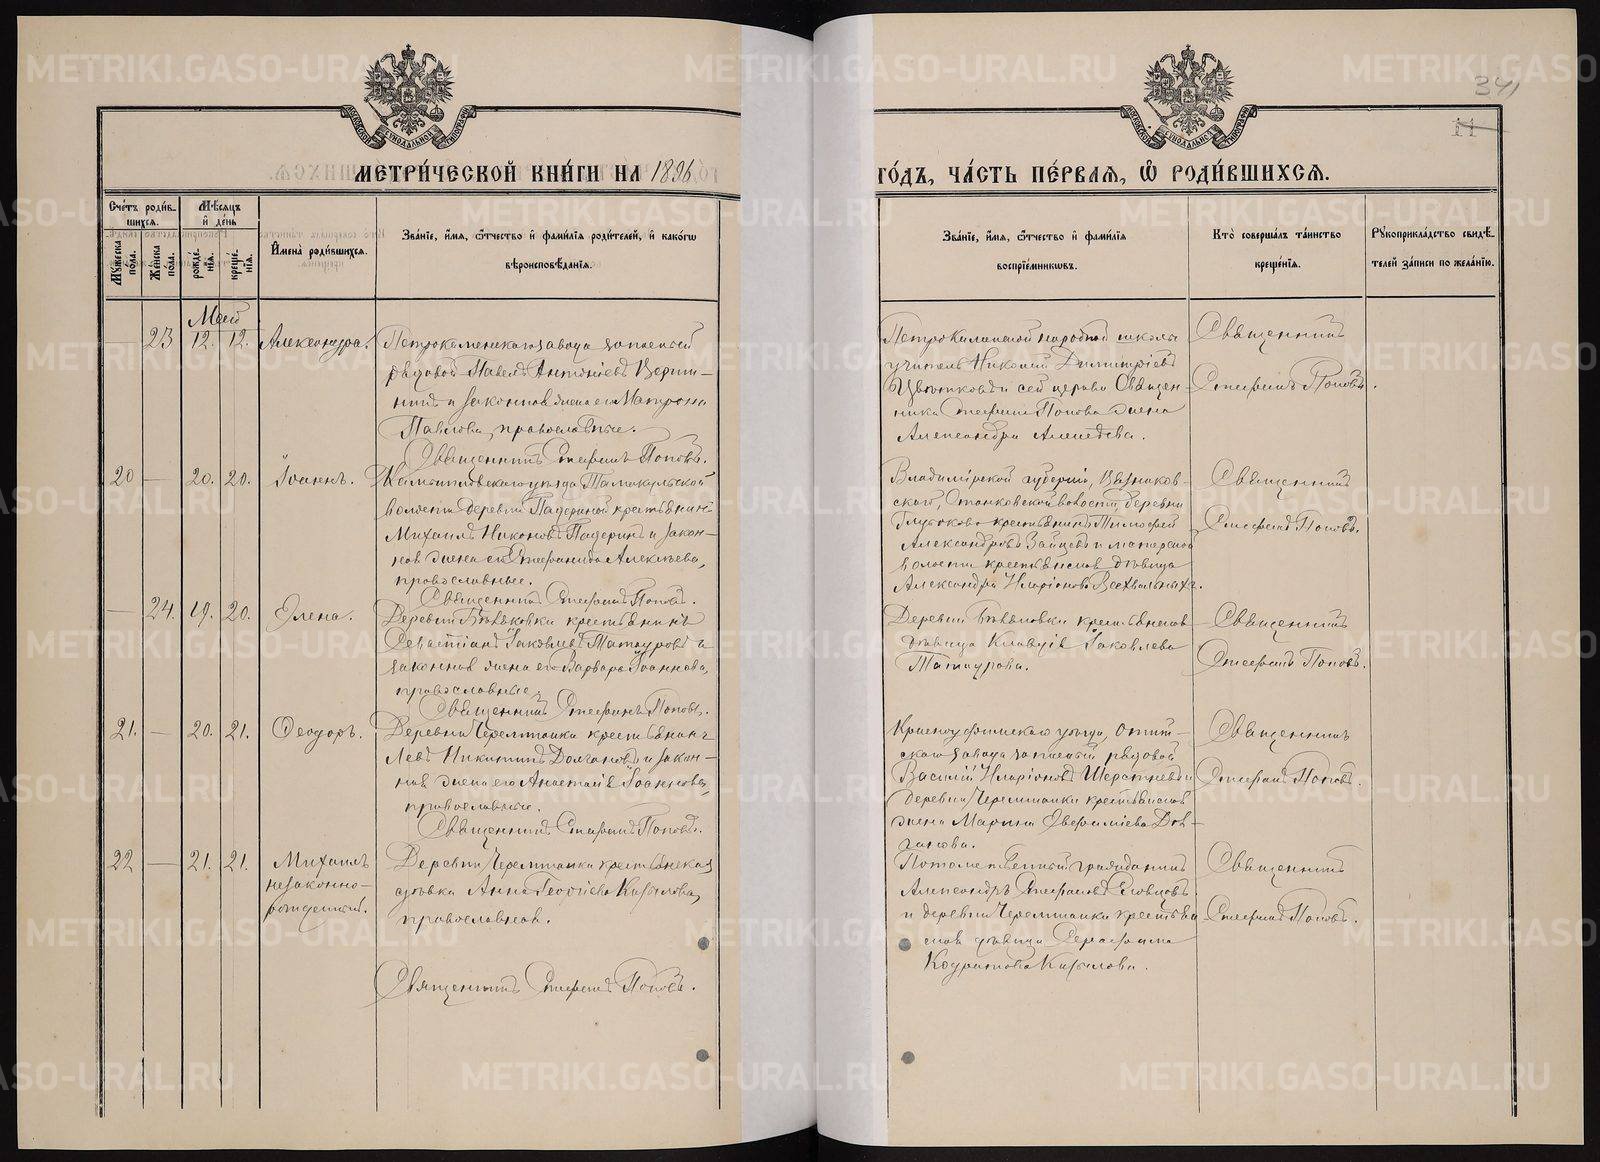 341
11
МЕТРИ́ЧЕСКОЙ КНИ́ГИ НА 1896
ГО́ДЪ, ЧА́СТЬ ПЕ́РВАЯ, Ѽ РОДИ́ВШИХСЯ.
Сче́тъ роди́в-
шихся.
Мѣсяцъ
и҆ де́нь
Мꙋ́жеска по́ла.
Же́нска по́ла.
рожде́-
нїя.
креще́-
нїя.
И҆мена̀ роди́вшихся.
Зва́нїе, и҆́мя, ѻ҆́тчество и҆ фамі́лїя роди́телей, и҆ како́гѡ
вѣроисповѣ́данїя.
Зва́нїе, и҆́мя, ѻ҆́тчество и҆ фамі́лїя
воспрїе́мникѡвъ.
Кто̀ соверша́лъ та́инство
креще́нїя.
Рꙋкоприкла́дство свидѣ́-
телей за́писи по жела́нїю.
Май
— 23 12. 12. Александра.
Петрокаменскаго завода запасный
рядовой Павелъ Антоніевъ
и законная жена его Матрона
Павлова, православные.
Священникъ Стефанъ Поповъ.
Петрокаменской народной школы
учитель Николай Димитріевъ
Цвѣтковъ и сей церкви Священ-
ника Стефана Попова жена
Александра
Священникъ
Стефанъ Поповъ.
20 — 20. 20. Іоаннъ.
Камышловскаго уѣзда
волости деревни крестьянинъ
Михаилъ Никоновъ и закон-
ная жена его Алексѣева,
православные.
Священникъ Стефанъ Поповъ.
Владимірской губерніи, Вязников-
скаго, Станковской волости, деревни
Глубоково крестьянинъ Тимофей
Александровъ Зайцевъ и
волости крестьянская дѣвица
Александра Иларіонова
Священникъ
Стефанъ Поповъ.
— 24. 19. 20. Елена.
Деревни Бѣляковки крестьянинъ
Севастіанъ Іаковлевъ Татауровъ и
законная жена его Варвара Іоаннова,
православные.
Священникъ Стефанъ Поповъ.
Деревни Бѣляковки крестьянская
дѣвица Клавдія Іаковлева
Татаурова.
Священникъ
Стефанъ Поповъ.
21. — 20. 21. Ѳеодоръ.
Деревни Черемшанки крестьянинъ
Левъ Никитинъ Долгановъ и закон-
ная жена его Анастасія Іоаннова,
православные.
Священникъ Стефанъ Поповъ.
Красноуфимскаго уѣзда,
скаго завода запасный рядовой
Василій Иларіоновъ и
деревни Черемшанки крестьянская
жена Марина Дол-
ганова.
Священникъ
Стефанъ Поповъ.
22 — 21. 21. Михаилъ
незаконно-
рожденный.
Деревни Черемшанки крестьянская
дѣвка Анна Георгіева Кирилова,
православная.
Священникъ Стефанъ Поповъ.
Потомственный гражданинъ
Александръ Стефановъ
и деревни Черемшанки крестьян-
ская дѣвица Серафима
Кодратова Кирилова.
Священникъ
Стефанъ Поповъ.
METRIKI.GASO-URAL.RU